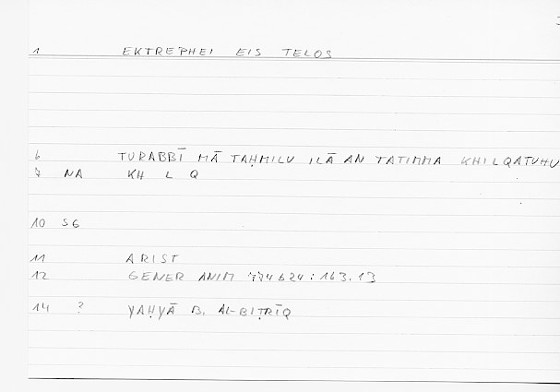 1 EKTREPHEI EIS TELOS
6 TURABBĪ MĀ TAḤMILU ILĀ AN TATIMMA KHILQATUHU
7 NA KH L Q
10 SG
11 ARIST
12 GENER ANIM 774b24 : 163.13
14 ? YAḤYĀ B. AL-BIṬRĪQ